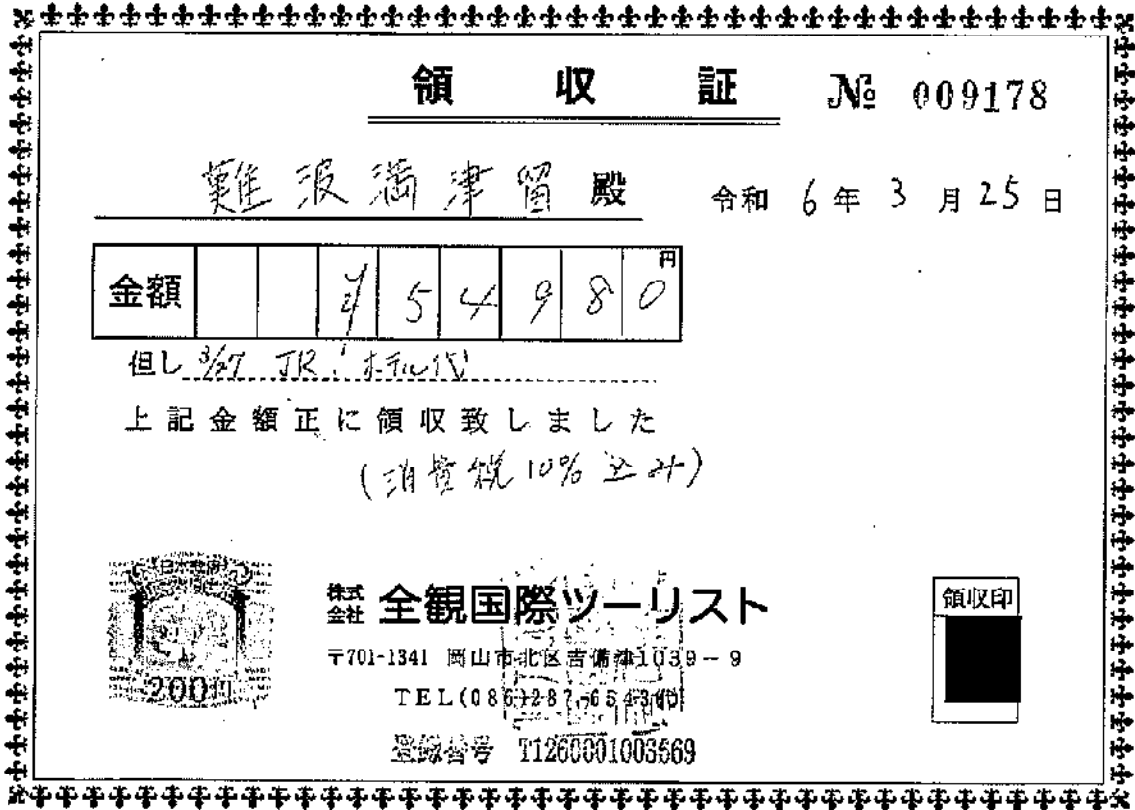 領収証 № 009178
難波満津留 殿 令和 6年 3月 25日
金額 ¥54980円
但し 3/27 JR、ホテル代
上記金額正に領収致しました
(消費税10%込み)
日本政府
200円
株式会社 全観国際ツーリスト
領収印
〒701-1341 岡山市北区吉備津1039-9
TEL(086)287-6543㈹
登録番号 T1260001003569